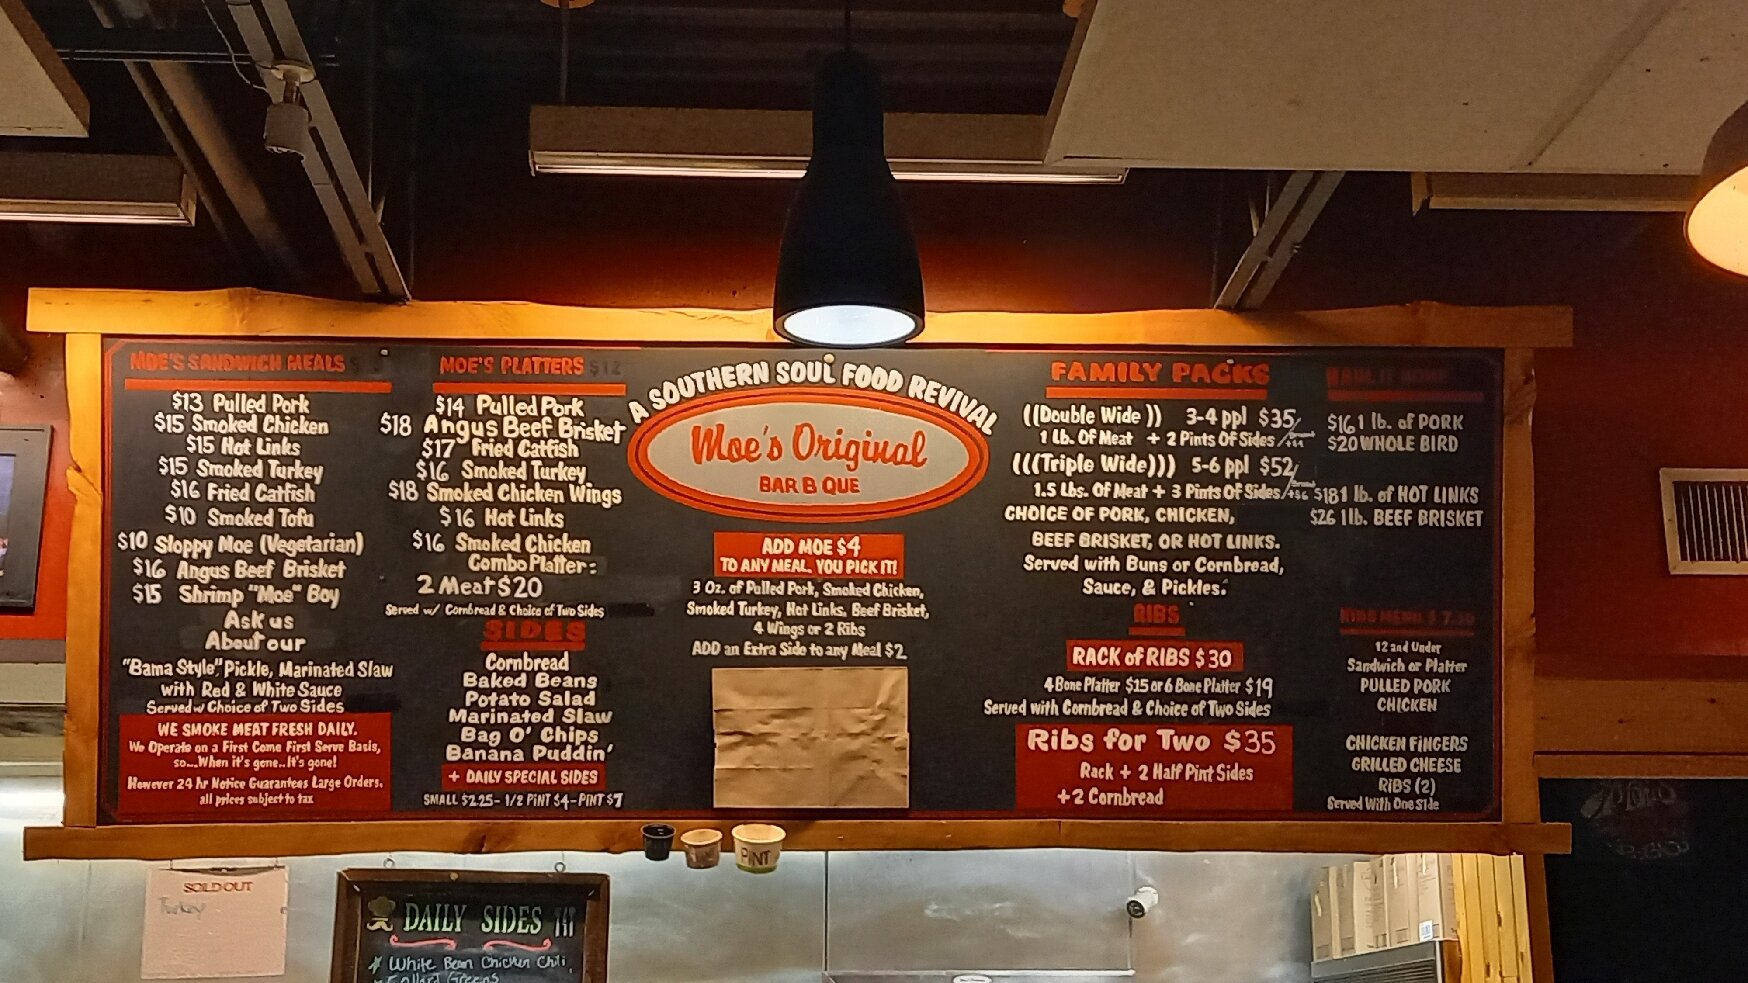 MOE'S SANDWICH MEALS
$13 Pulled Pork
$15 Smoked Chicken
$15 Hot Links
$15 Smoked Turkey
$16 Fried Catfish
$10 Smoked Tofu
$10 Sloppy Moe (Vegetarian)
$16 Angus Beef Brisket
$15 Shrimp "Moe" Boy
Ask us
About our
"Bama Style", Pickle, Marinated Slaw
with Red & White Sauce
Served w/ Choice of Two Sides
WE SMOKE MEAT FRESH DAILY.
We Operate on a First Come First Serve Basis,
so...When it's gone..It's gone!
However 24 hr Notice Guarantees Large Orders.
all prices subject to tax
MOE'S PLATTERS $12
$14 Pulled Pork
$18 Angus Beef Brisket
$17 Fried Catfish
$16 Smoked Turkey
$18 Smoked Chicken Wings
$16 Hot Links
$16 Smoked Chicken
Combo Platter:
2 Meat $20
Served w/ Cornbread & Choice of Two Sides
SIDES
Cornbread
Baked Beans
Potato Salad
Marinated Slaw
Bag O' Chips
Banana Puddin'
+ DAILY SPECIAL SIDES
SMALL $2.25 - 1/2 PINT $4 - PINT $7
A SOUTHERN SOUL FOOD REVIVAL
Moe's Original
BAR B QUE
ADD MOE $4
TO ANY MEAL. YOU PICK IT!
3 Oz. of Pulled Pork, Smoked Chicken,
Smoked Turkey, Hot Links, Beef Brisket,
4 Wings or 2 Ribs
ADD an Extra Side to any Meal $2
FAMILY PACKS
((Double Wide)) 3-4 ppl $35/
1 Lb. Of Meat + 2 Pints Of Sides
(((Triple Wide))) 5-6 ppl $52/
1.5 Lbs. Of Meat + 3 Pints Of Sides
CHOICE OF PORK, CHICKEN,
BEEF BRISKET, OR HOT LINKS.
Served with Buns or Cornbread,
Sauce, & Pickles.
RIBS
RACK of RIBS $30
4 Bone Platter $15 or 6 Bone Platter $19
Served with Cornbread & Choice of Two Sides
Ribs for Two $35
Rack + 2 Half Pint Sides
+ 2 Cornbread
HAUL IT HOME
$16 1 lb. of PORK
$20 WHOLE BIRD
$18 1 lb. of HOT LINKS
$26 1 lb. BEEF BRISKET
KIDS MENU
12 and Under
Sandwich or Platter
PULLED PORK
CHICKEN
CHICKEN FINGERS
GRILLED CHEESE
RIBS (2)
Served With One Side
PINT
SOLD OUT
Turkey
DAILY SIDES
White Bean Chicken Chili
Collard Greens